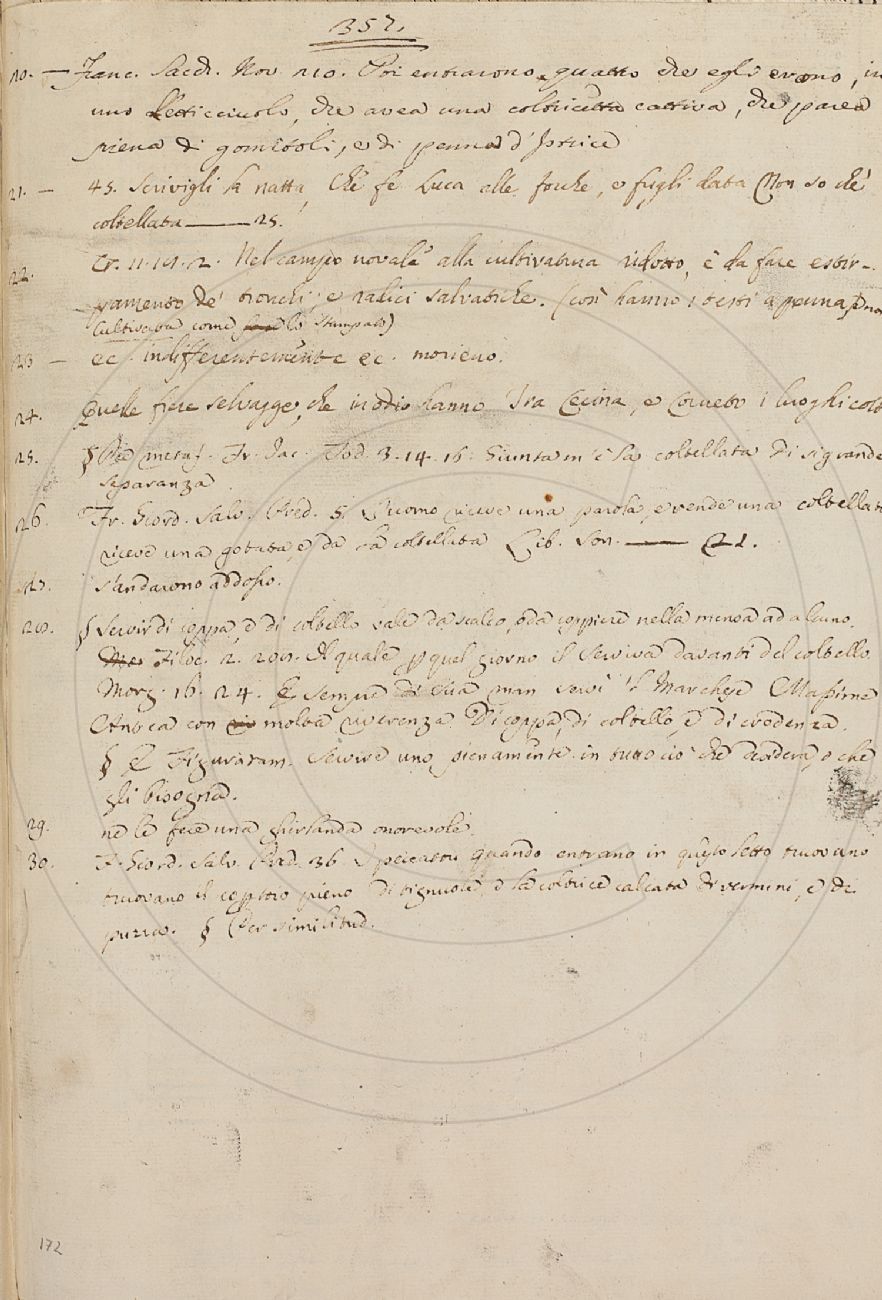 357.
20. — Franc. Sacch. Nov. 210. Poi entrarono quatto che egli erano, in
uno letticciuolo, che avea una coltricetta cattiva, che parea
piena di gomitoli, e di penna d'Istrice
21. — 45. Scrivigli la natta, che fe Luca alle forche, e fugli data Non so che
coltellata —— 25.
22. Cr. 11. 19. 2. Nel campo novale alla cultivatura ridotto, è da fare estir-
pamento de' tronchi, e radici salvatiche. (così hanno i testi a penna, e non
Cultivata come lo Stampato)
23 — ec. indifferentemente ec. morieno.
24. Quelle fiere selvagge, che in odio hanno Tra Cecina, e Corneto i luoghi colti
25. § Per metaf. Fr. Jac. Tod. 3. 14. 16. Giunta m'è la coltellata Di si grande
separanza
26. Fr. Giord. Salv. Pred. 5. L'uomo riceve una parola, e rende una coltellata
riceve una gotata, e dà la coltellata Lib. Son. —— 21.
27. s'andarono addosso.
28. § Servir di coppa, e di coltello vale da scalco, o da coppiere nella mensa ad alcuno.
Filoc. 2. 209. Il quale p quel giorno il serviva davanti del coltello.
Morg. 16. 24. E sempre di sua man servì 'l Marchese Massime
Antea con molta riverenza Di coppa, di coltello, e di credenza.
§ E Figuratam. Servire uno pienamente in tutto ciò che desidera, o che
gli bisogna.
29. ne le fece una ghirlanda onorevole
30. F. Giord. Salv. Pred. 36. I peccatori quando entrano in questo letto truovano
truovano il copptoio pieno di tignuole, e la coltrice calcata di vermini, e di
puzza. § Per similitud.
172